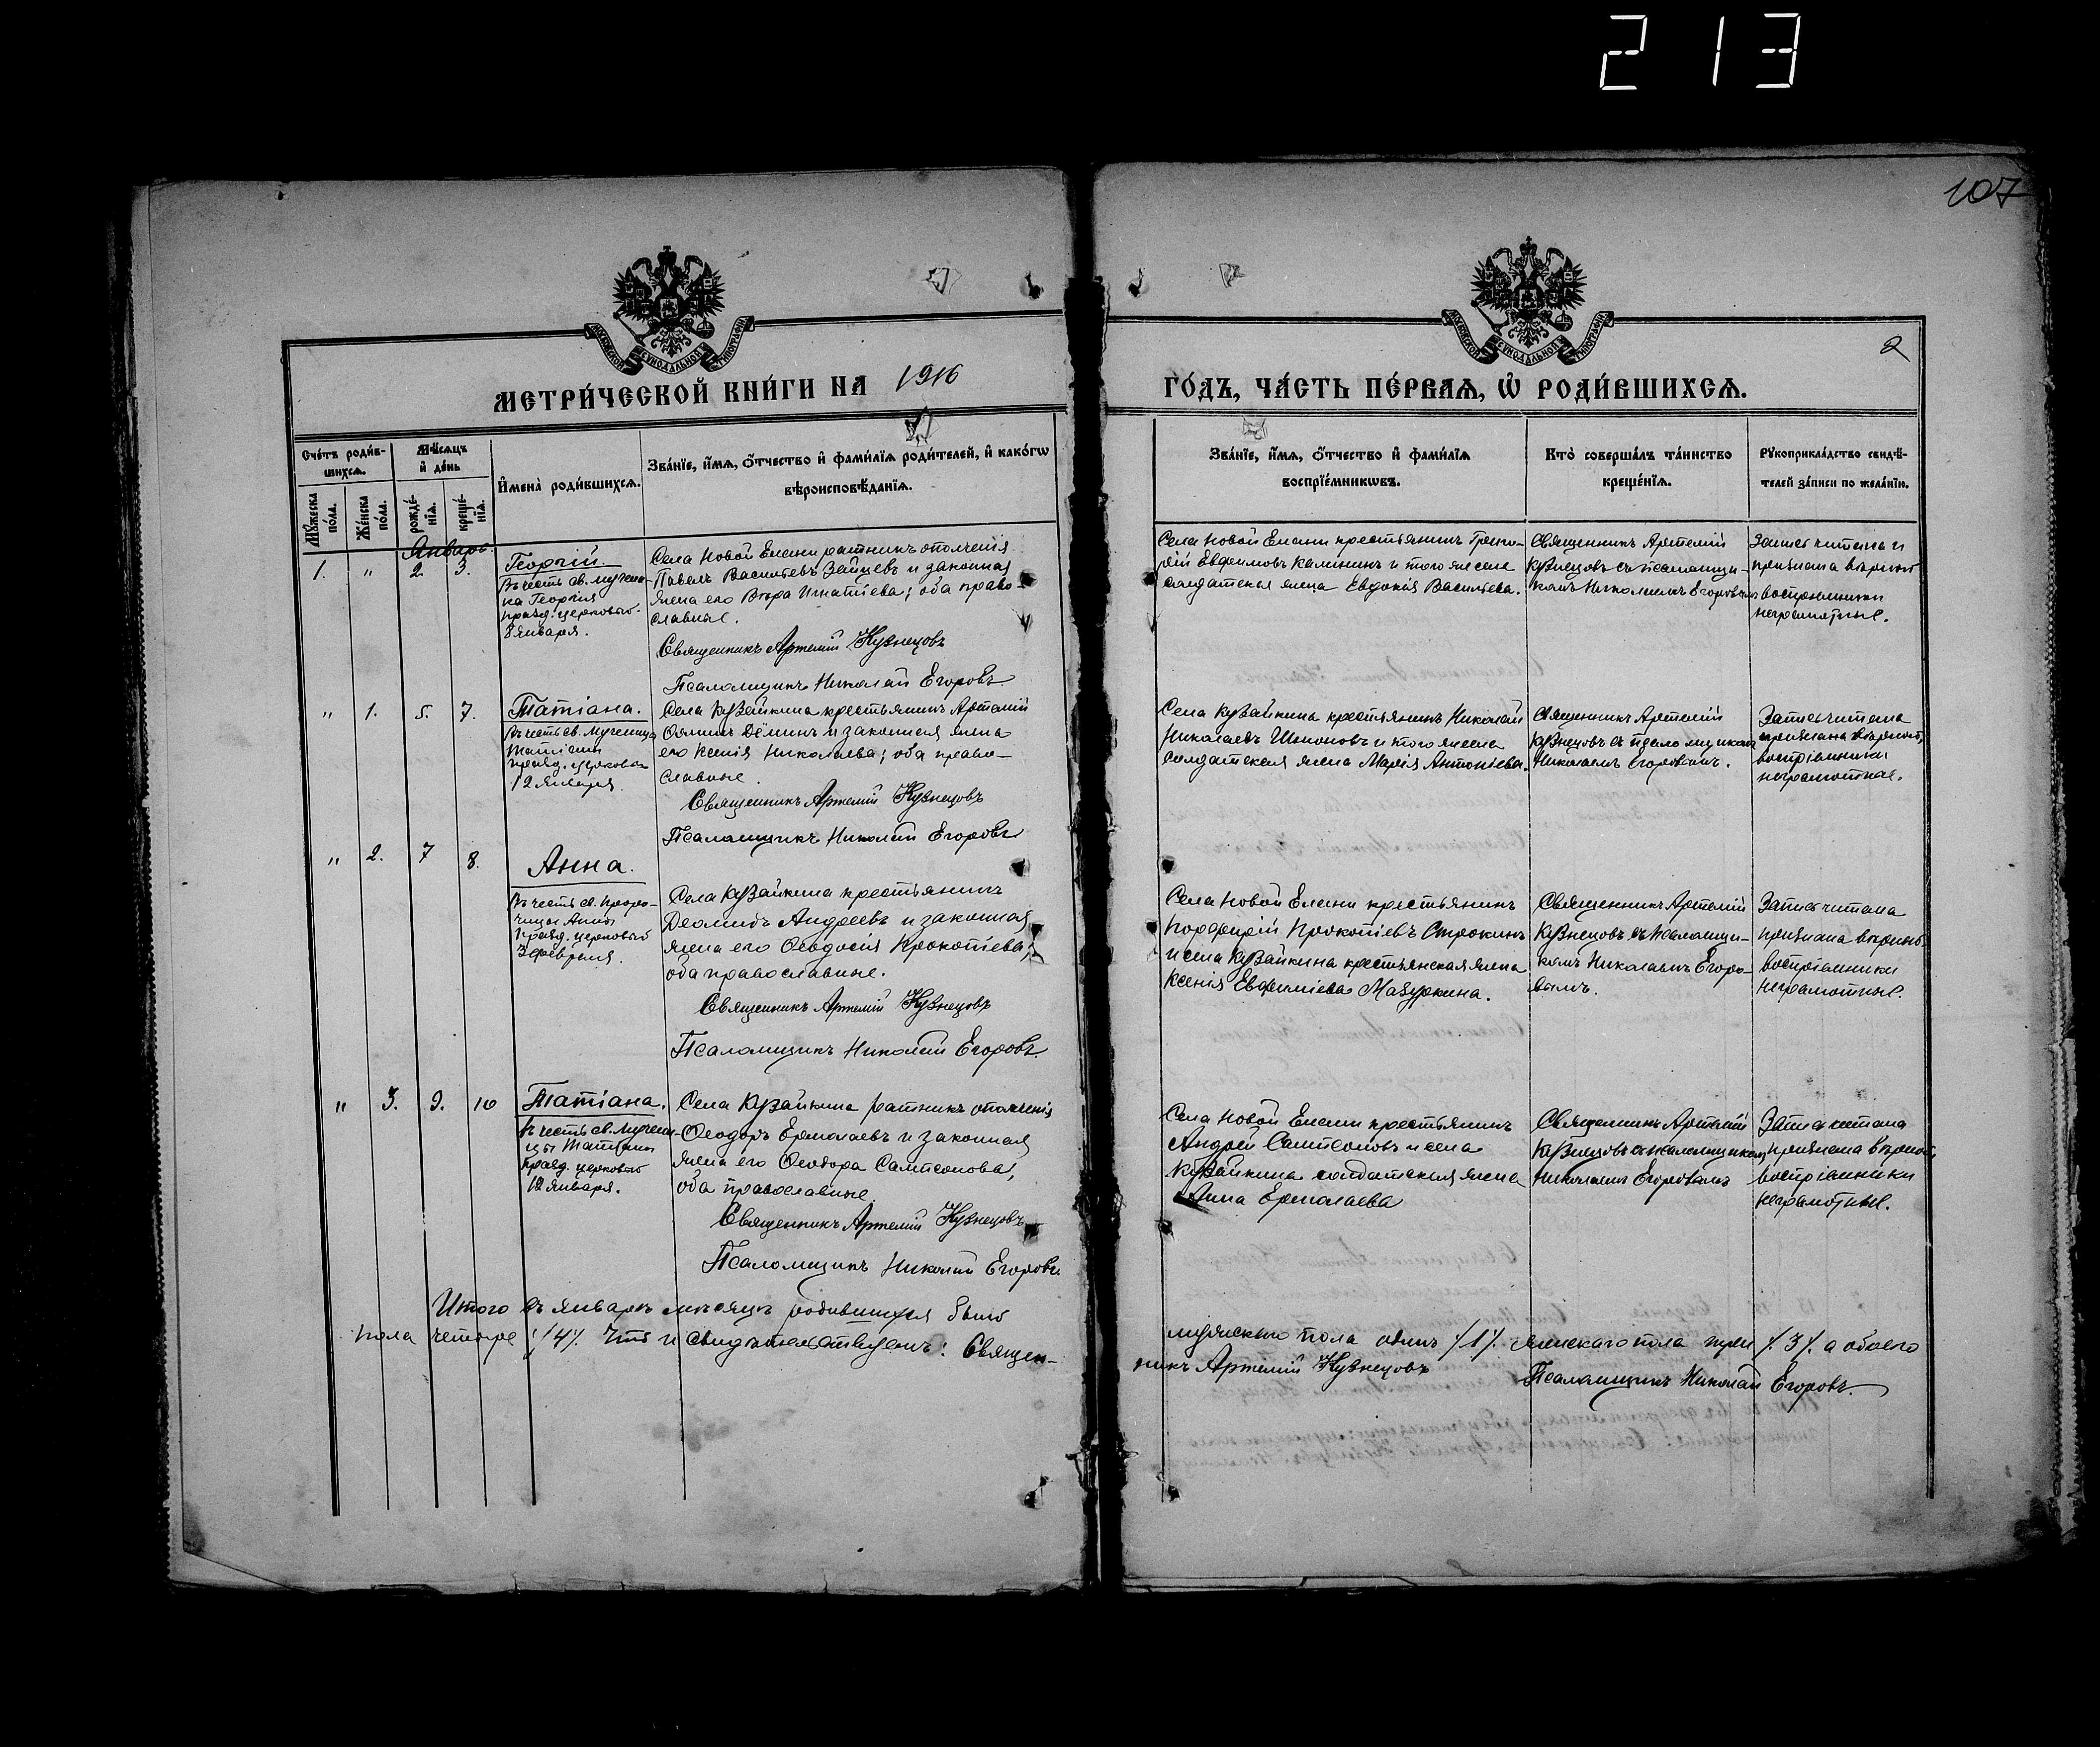 213
107
МОСКОВСКОЙ СѴНОДАЛЬНОЙ ТИПОГРАФІИ
МОСКОВСКОЙ СѴНОДАЛЬНОЙ ТИПОГРАФІИ
2
МЕТРИ́ЧЕСКОЙ КНИ́ГИ НА 1916
ГО́ДЪ, ЧА́СТЬ ПЕ́РВАѦ, Ѡ҆ РОДИ́ВШИХСѦ.
Сче́тъ роди́в-
шихсѧ.
Мѣ́сѧцъ
и҆ де́нь
Мꙋ́жеска по́ла.
Же́нска по́ла.
рожде́-нїѧ.
креще́-нїѧ.
И҆мена̀ роди́вшихсѧ.
Зва́нїе, и҆́мѧ, ѻ҆́тчество и҆ фами́лїѧ роди́телей, и҆ како́гѡ
вѣроисповѣ́данїѧ.
Зва́нїе, и҆́мѧ, ѻ҆́тчество и҆ фами́лїѧ
воспрїе́мникѡвъ.
Кто̀ соверша́лъ та́инство
креще́нїѧ.
Рꙋкоприкла́дство свидѣ́-
телей за́писи по жела́нїю.
Январь.
1. " 2. 3.
Георгій.
Въ честь св. мучени-
ка Георгія
празд. церковью
8 января.
Села Новой Елани ратникъ ополченія
Павелъ Васильевъ Зайцевъ и законная
жена его Вѣра Игнатіева; оба право-
славные.
Священникъ Артемій Кузнецовъ
Псаломщикъ Николай Егоровъ.
Села Новой Елани крестьянинъ Григо-
рій Евфимовъ Калининъ и того же села
солдатская жена Евдокія Васильева.
Священникъ Артемій
Кузнецовъ съ псаломщи-
комъ Николаемъ Егоровымъ
Запись читана и
признана вѣрной
воспріемники
неграмотные.
" 1. 5. 7.
Татіана.
Въ честь св. мученицы
Татіаны
празд. церковью
12 января.
Села Кузайкина крестьянинъ Артемій
Дёминъ и законная жена
его Ксенія Николаева; оба право-
славные.
Священникъ Артемій Кузнецовъ
Псаломщикъ Николай Егоровъ
Села Кузайкина крестьянинъ Николай
Николаевъ и того же села
солдатская жена Марія Антоніева.
Священникъ Артемій
Кузнецовъ съ псаломщикомъ
Николаемъ Егоровымъ.
Запись читана
признана вѣрной,
воспріемники
неграмотные.
" 2. 7 8.
Анна.
Въ честь св. Проро-
чицы Анны
празд. церковью
3 февраля.
Села Кузайкина крестьянинъ
Деомидъ Андреевъ и законная
жена его Ѳеодосія Прокопіева;
оба православные.
Священникъ Артемій Кузнецовъ
Псаломщикъ Николай Егоровъ.
Села Новой Елани крестьянинъ
Порфирій Прокопіевъ Строкинъ
и села Кузайкина крестьянская жена
Ксенія Евфиміева Мазуркина.
Священникъ Артемій
Кузнецовъ съ псаломщи-
комъ Николаемъ Егоро-
вымъ.
Запись читана
признана вѣрной
воспріемники
неграмотные.
" 3. 9. 10
Татіана.
Въ честь св. мучени-
цы Татіаны
празд. церковью
12 января.
Села Кузайкина ратникъ ополченія
Ѳеодоръ Ермолаевъ и законная
жена его Ѳеодора Сампсонова,
оба православные.
Священникъ Артемій Кузнецовъ
Псаломщикъ Николай Егоровъ.
Села Новой Елани крестьянинъ
Андрей Сампсоновъ и села
Кузайкина солдатская жена
Анна Ермолаева
Священникъ Артемій
Кузнецовъ съ псаломщикомъ
Николаемъ Егоровымъ
Запись читана
признана вѣрной
воспріемники
неграмотные.
Итого въ январѣ мѣсяцѣ родившихся было
мужского пола одинъ /1/. женскаго пола три /3/. а обоего
пола четыре /4/. Что и свидѣтельствуемъ: Священ-
никъ Артемій Кузнецовъ
Псаломщикъ Николай Егоровъ.